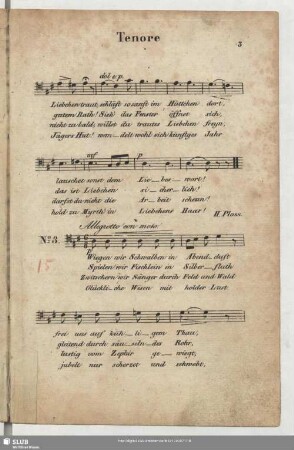 Tenore
3
dol: e p.
Liebchen traut, schläft so sanft im Hüttchen dort,
gutem Rath! Sieh' das Fenster öffnet sich,
nicht zu bald, willst du trautes Liebchen seyn,
Jägers Hut! wan_delt wohl sich künftges Jahr
mf p.
lauschet sonst dem Lie_bes_wort!
das ist Liebchen si_cher_lich!
darfst du nicht die Ar_beit scheun!
hold zu Myrth' in Liebchens Haar! H. Plass.
Allegretto con moto.
No. 3.
p
Wiegen wir Schwalben in Abend_duft
Spielen wir Fischlein in Silber_fluth
Zwitschern wir Sänger durch Feld und Wald
Glückli_che Wesen mit holder Lust
15.
frei uns auf küh_li_gem Thau,
gleitend durch säu_seln_des Rohr,
lustig vom Zephir ge_wiegt,
jubelt nur scherzet und schwebt,
SLUB